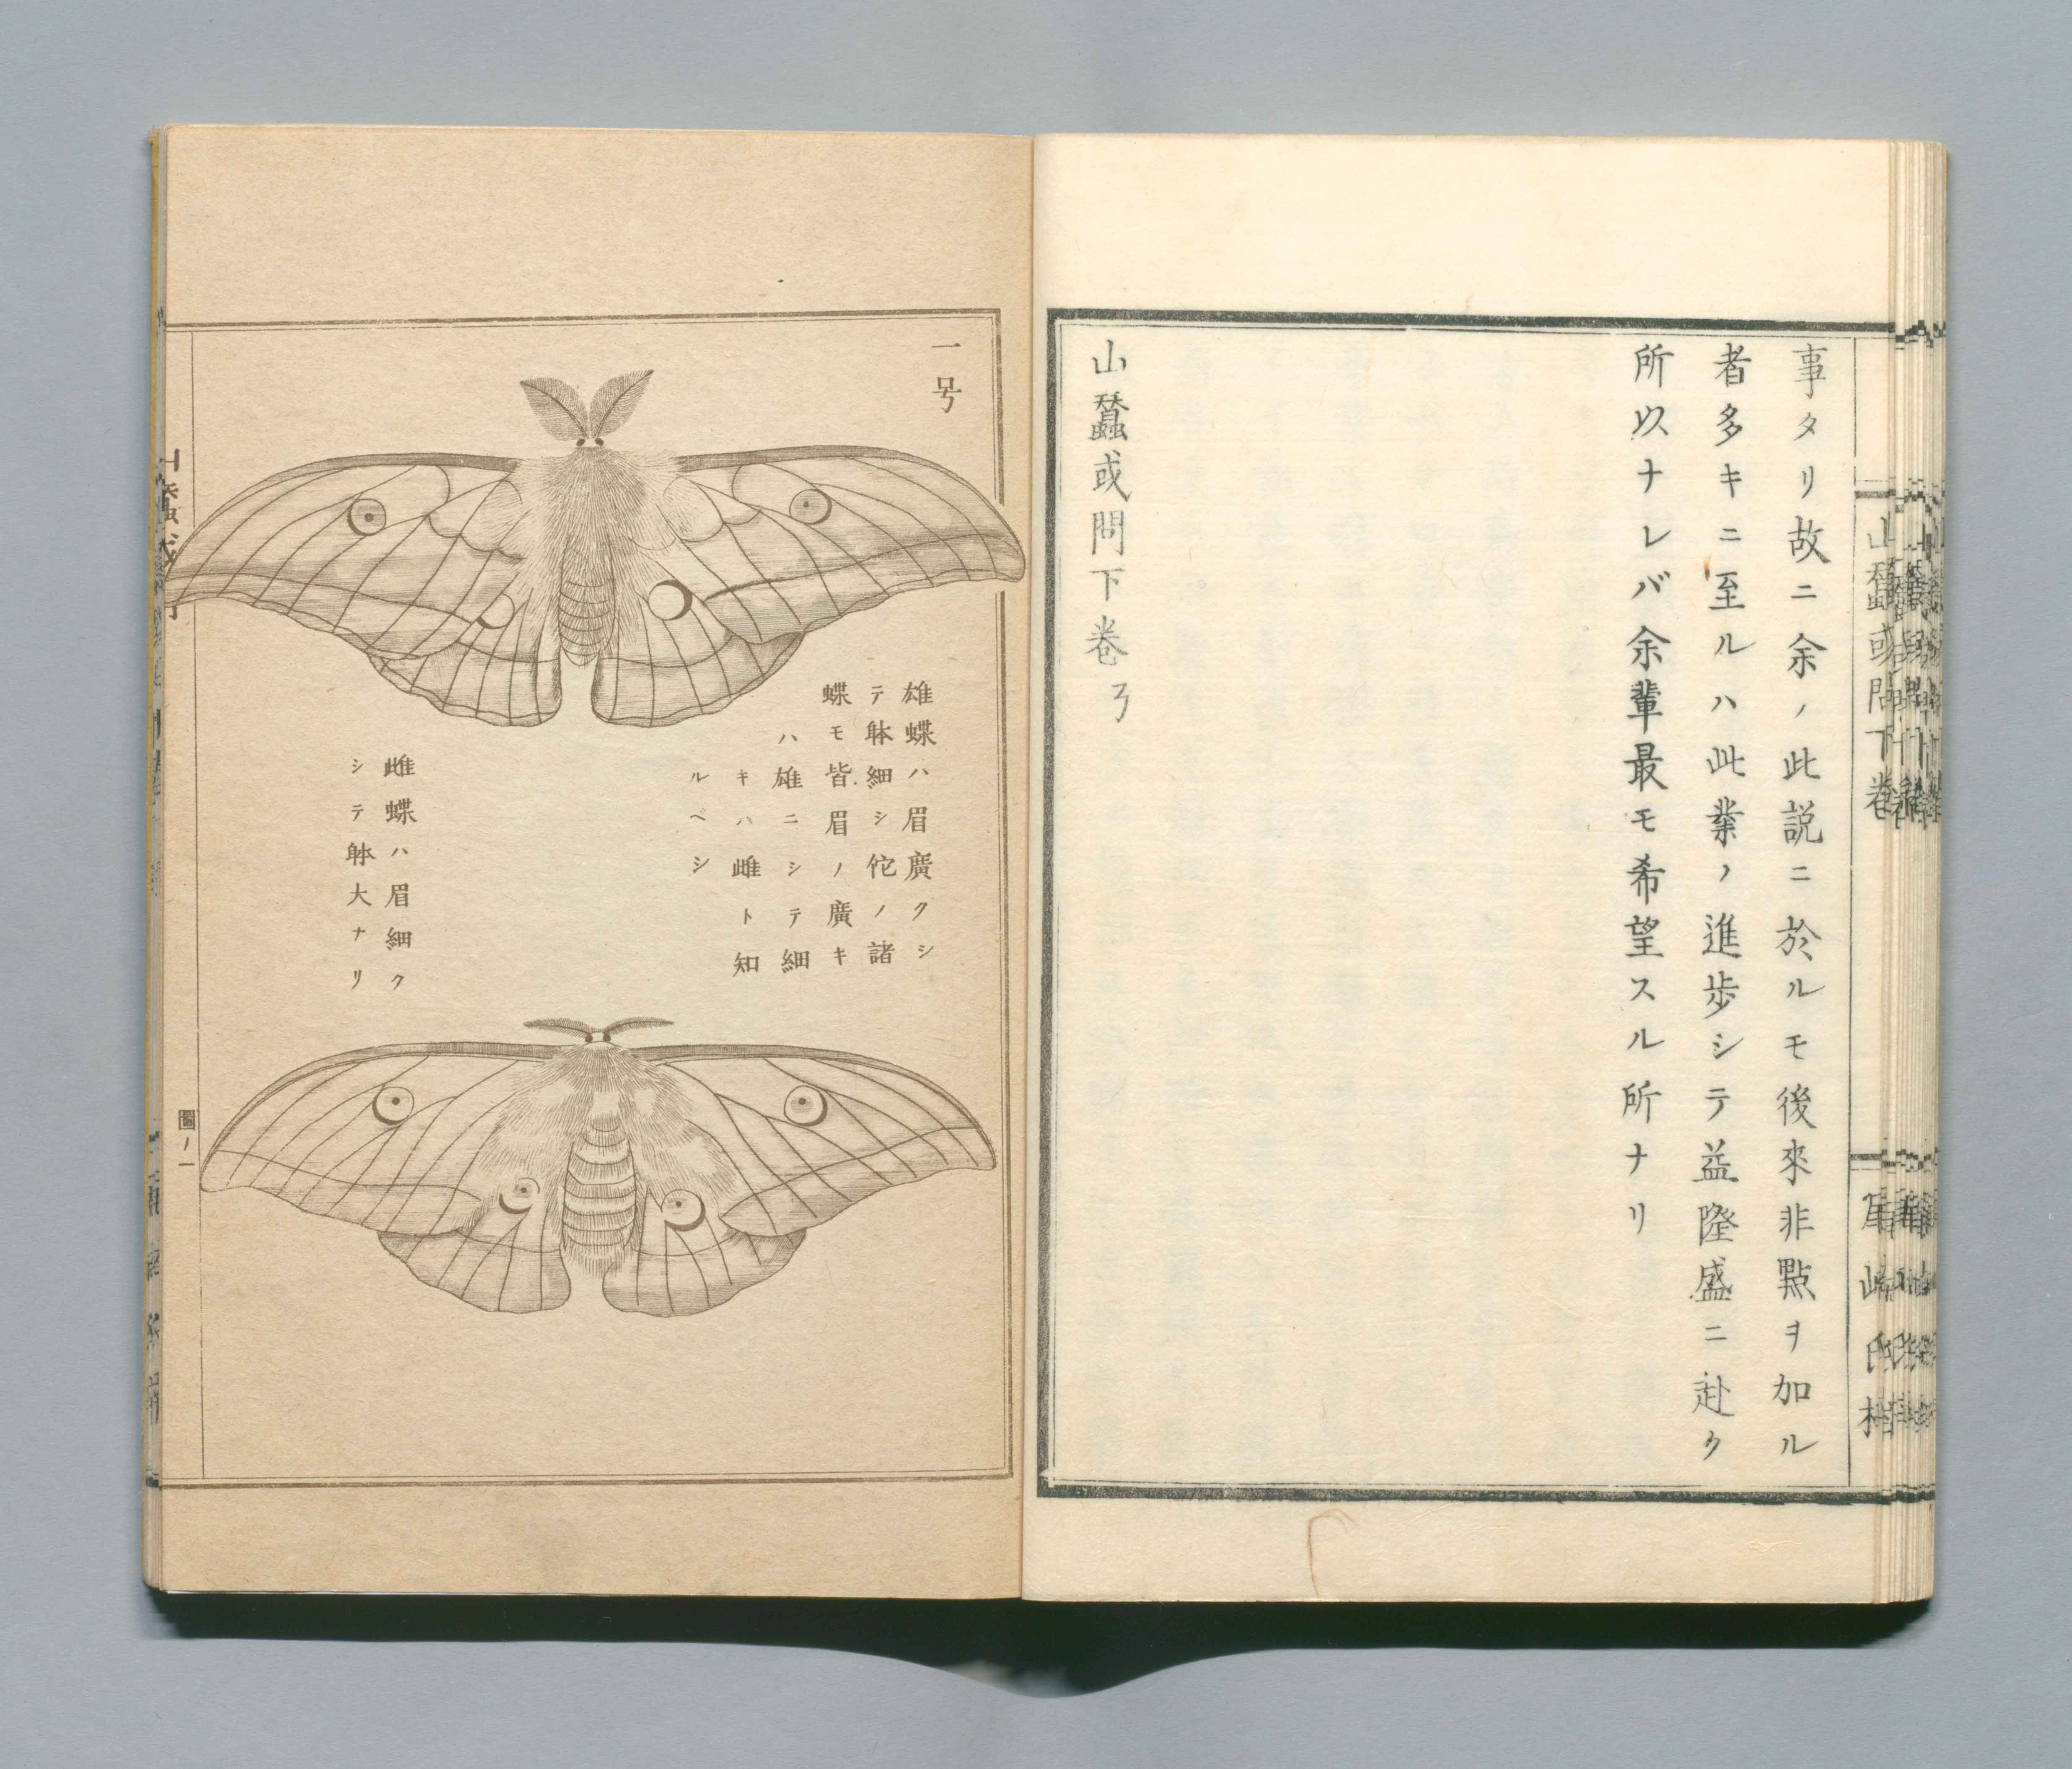 事タリ故ニ余ノ此説ニ於ルモ後來非點ヲ加ル
者多キニ至ルハ此業ノ進歩シテ益隆盛ニ赴ク
所以ナレバ余輩最モ希望スル所ナリ
山蠶或問下巻了
山蠶或問下巻
一号
雄蝶ハ眉廣クシ
テ躰細シ佗ノ諸
蝶モ皆眉ノ廣キ
ハ雄ニシテ細
キハ雌ト知
ルベシ
雌蝶ハ眉細ク
シテ躰大ナリ
圖ノ一